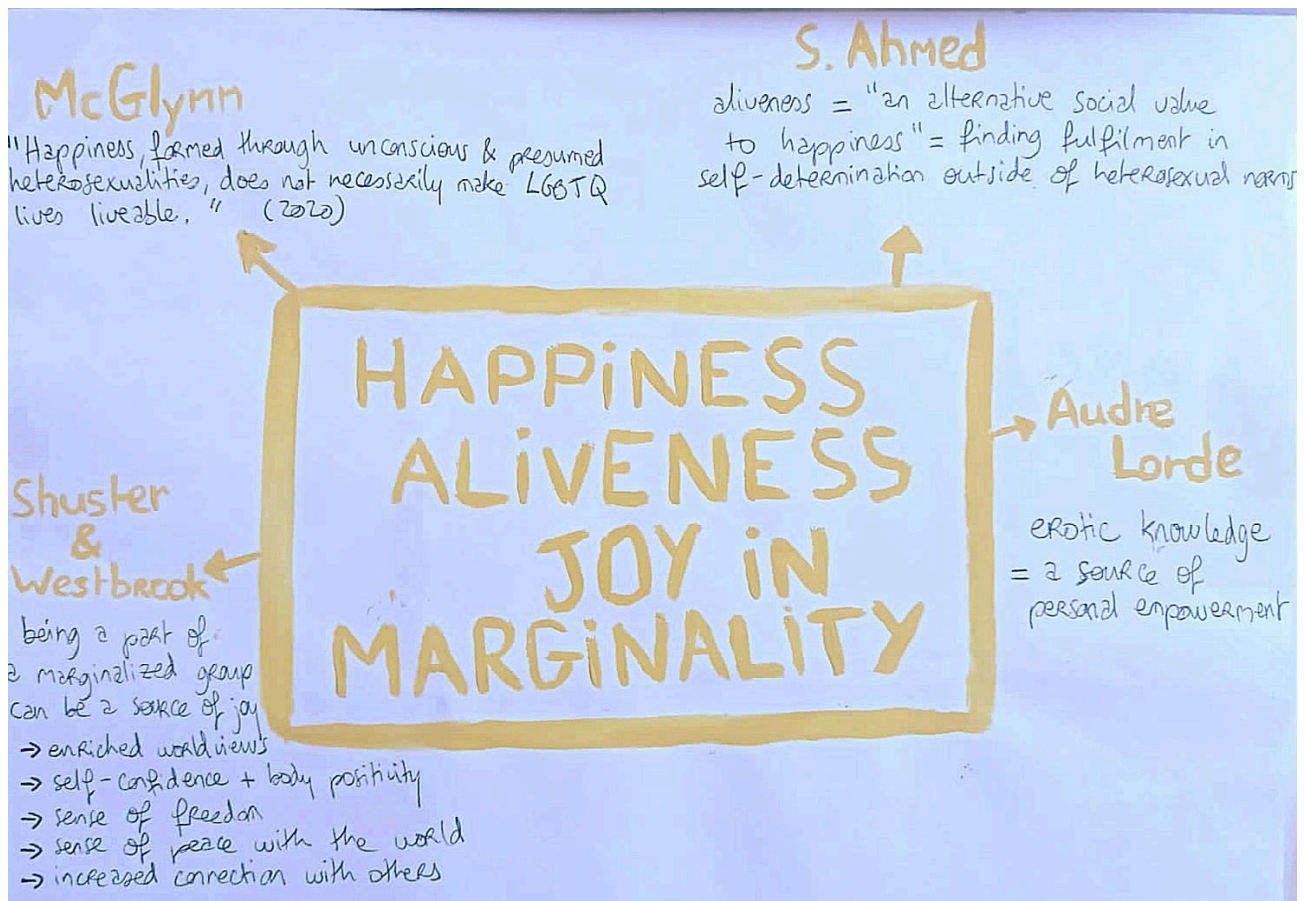 McGlynn
"Happiness, formed through unconscious & presumed
heterosexualities, does not necessarily make LGBTQ
lives liveable." (2020)
S. Ahmed
aliveness = "an alternative social value
to happiness" = finding fulfilment in
self-determination outside of heterosexual norms
HAPPiNESS
ALiVENESS
JOY iN
MARGiNALiTY
Audre
Lorde
erotic knowledge
= a source of
personal empowerment
Shuster
&
Westbrook
being a part of
a marginalized group
can be a source of joy
→ enriched worldviews
→ self-confidence + body positivity
→ sense of freedom
→ sense of peace with the world
→ increased connection with others